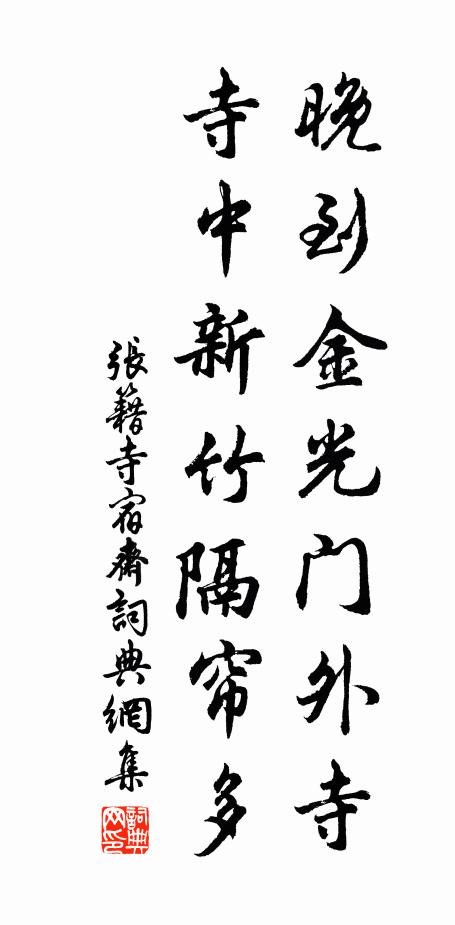 晚到金光门外寺
寺中新竹隔帘多
張籍寺宿齋詞典網集
詞典
网印